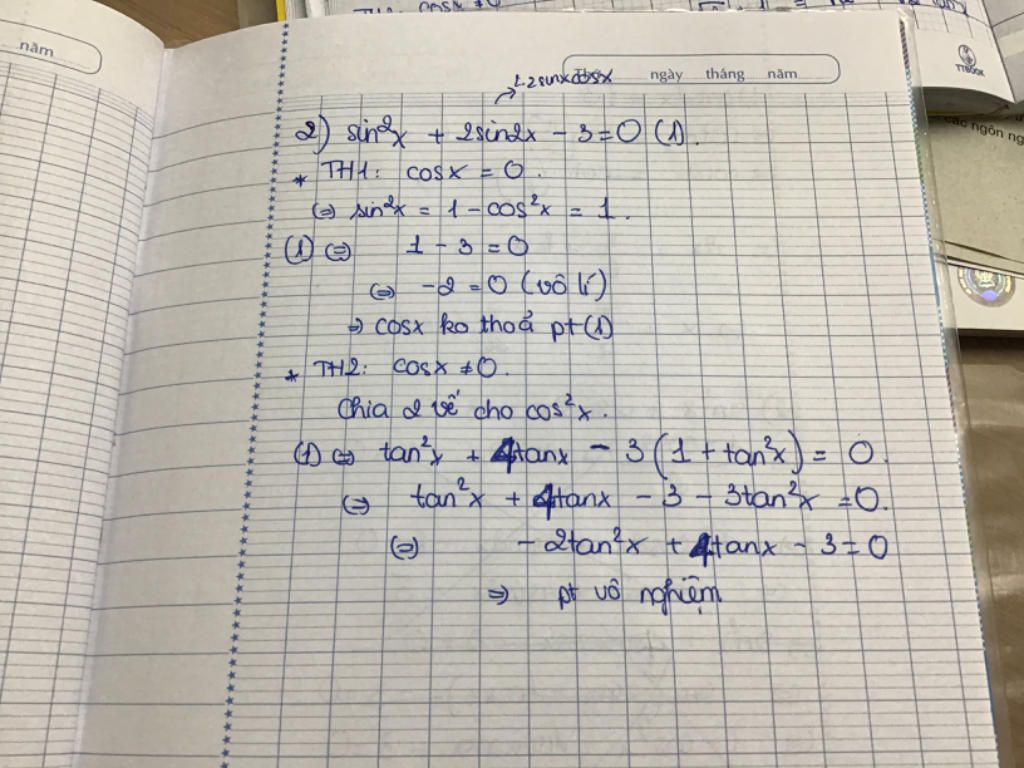 COSX ≠ 0
năm
ngày tháng năm
TTBOOK
2.2sinxcosx
2) sin²x + 2sin2x - 3 = 0 (1).
* TH1: cosx = 0.
(=) sin²x = 1 - cos²x = 1.
(1) (=) 1 - 3 = 0
(=) -2 = 0 (vô lí)
=> cosx ko thoả pt(1)
* TH2: cosx ≠ 0.
Chia 2 vế cho cos²x.
(1) (=) tan²x + 4tanx - 3(1 + tan²x) = 0.
(=) tan²x + 4tanx - 3 - 3tan²x = 0.
(=) -2tan²x + 4tanx - 3 = 0
=> pt vô nghiệm